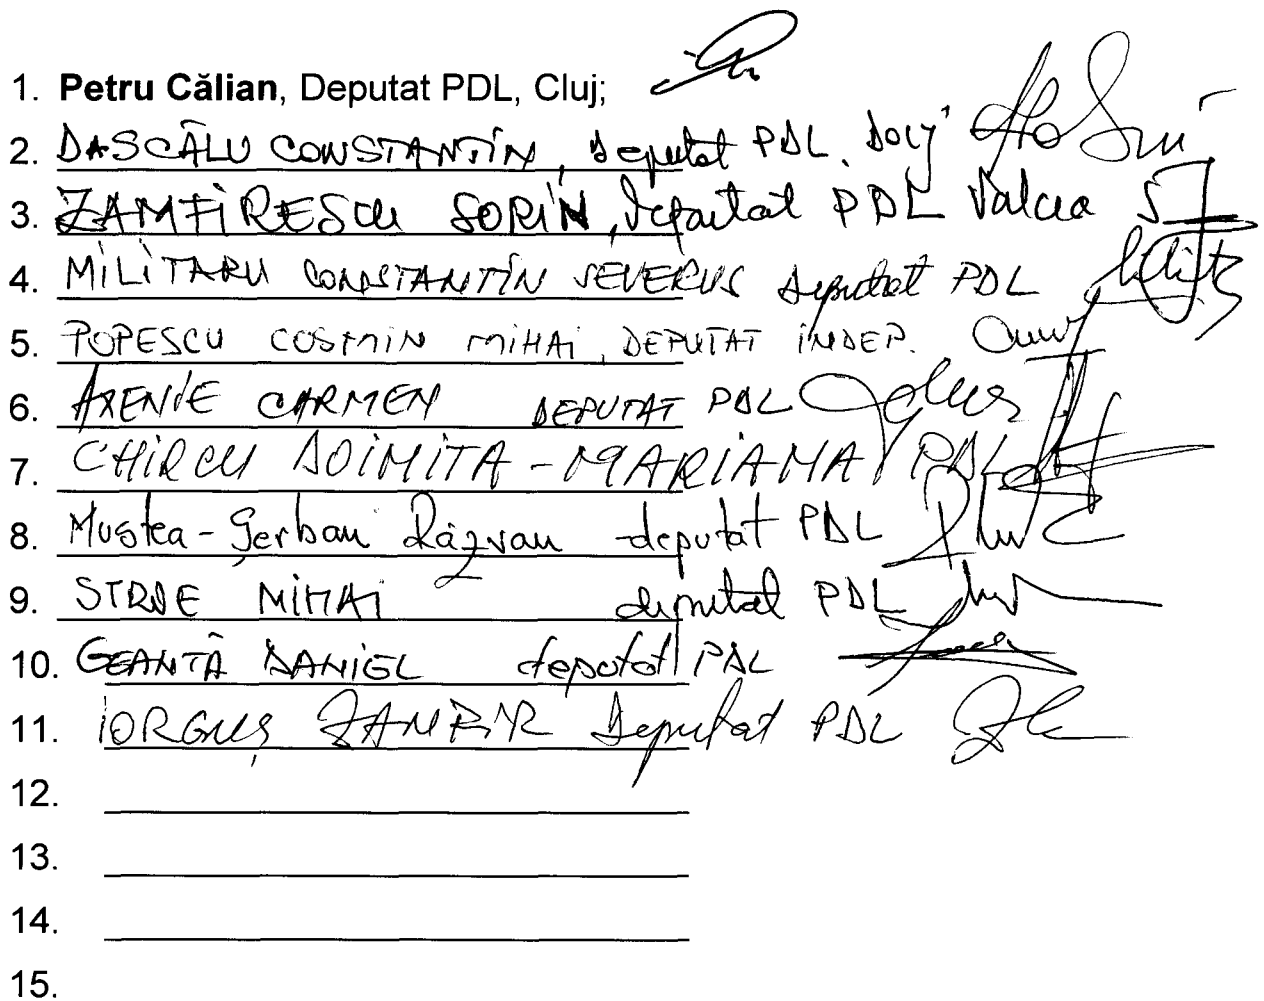 1. Petru Călian, Deputat PDL, Cluj;
2. DASCĂLU CONSTANTIN, Deputat PDL. Dolj
3. ZAMFIRESCU SORIN, deputat PDL Valcea
4. MILITARU CONSTANTIN SEVERUS deputat PDL
5. POPESCU COSMIN MIHAI, DEPUTAT INDEP.
6. AXENIE CARMEN DEPUTAT PDL
7. CHIRCU DOINITA-MARIANA PDL
8. Mustea-Şerban Răzvan deputat PDL
9. STROE MIHAI deputat PDL
10. GEANTĂ DANIEL deputat PDL
11. IORGUŞ ZANFIR Deputat PDL
12.
13.
14.
15.